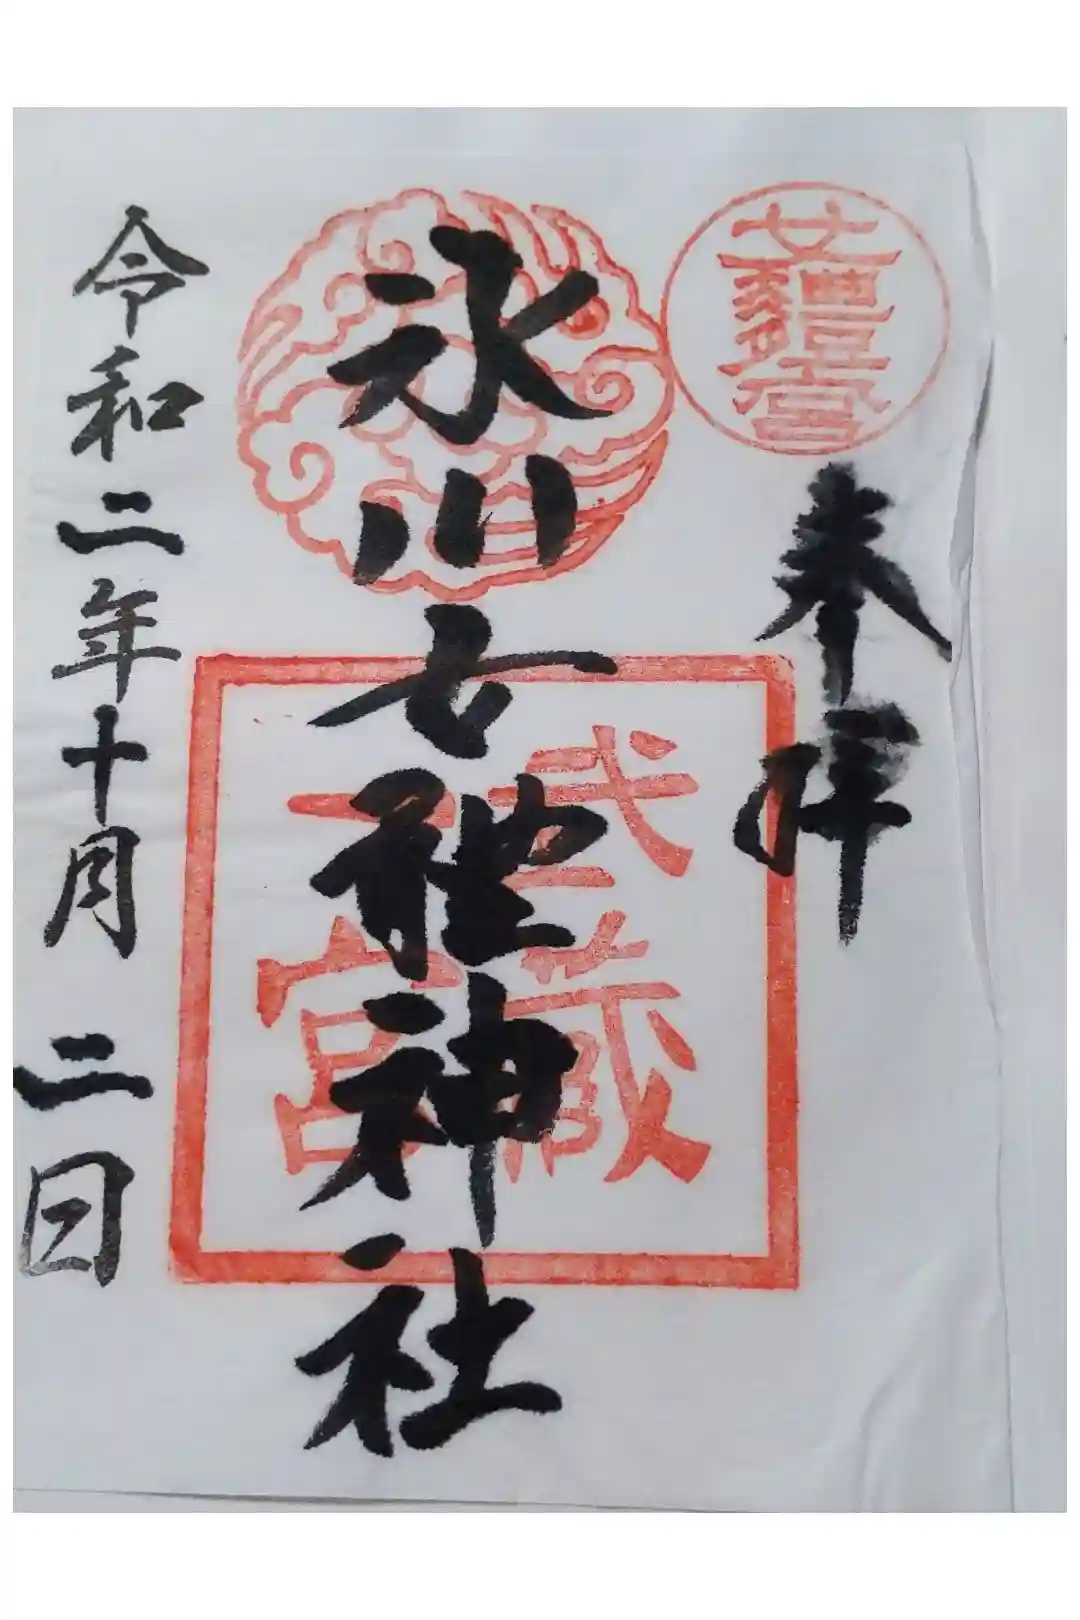 女軆宮
奉拝
氷川女體神社
武藏
一宮
令和二年十月二日